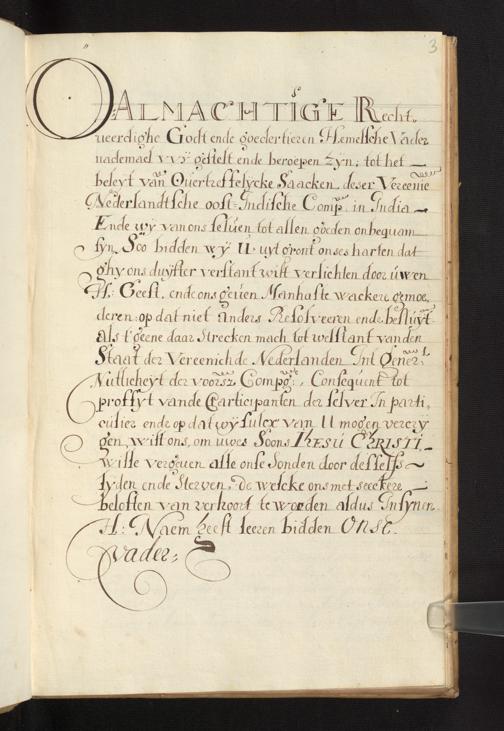 3
O ALMACHTIGE Recht„
veerdighe Godt ende goedertieren Hemelsche Vader
nademael wÿ gestelt ende beroepen Zyn; tot het —
beleyt van Overtreffelycke Saacken deser Vereenic
Nederlandtsche oost=Indische Comp: in India —
Ende wÿ van ons selven tot allen goeden onbequam
syn, Soo bidden wÿ U uyt gront onses harten dat
ghy ons duyster verstant wilt verlichten door úwen
H: Geest, ende ons geven Manhafte wackere gemoe„
deren: op dat niet anders Resolveeren ende besluyt
als t'geene daar Strecken mach tot welstant van den
Staat der Vereenichde Nederlanden Int gener:
Nutlicheyt der voorsz Compg:, Consequent tot
proffyt vande Participanten der selver In parti„
culier ende op dat wÿ sulcx van U mogen vercry
gen, wilt ons, om uwes Soons IHESU CHRISTI —
wille vergeven alle onse Sonden door desselfs ~
lyden ende Sterven, De welcke ons met seeckere —
beloften van verhoort te worden aldus In synen
H: Naem heeft leeren bidden ONSE
Vader=